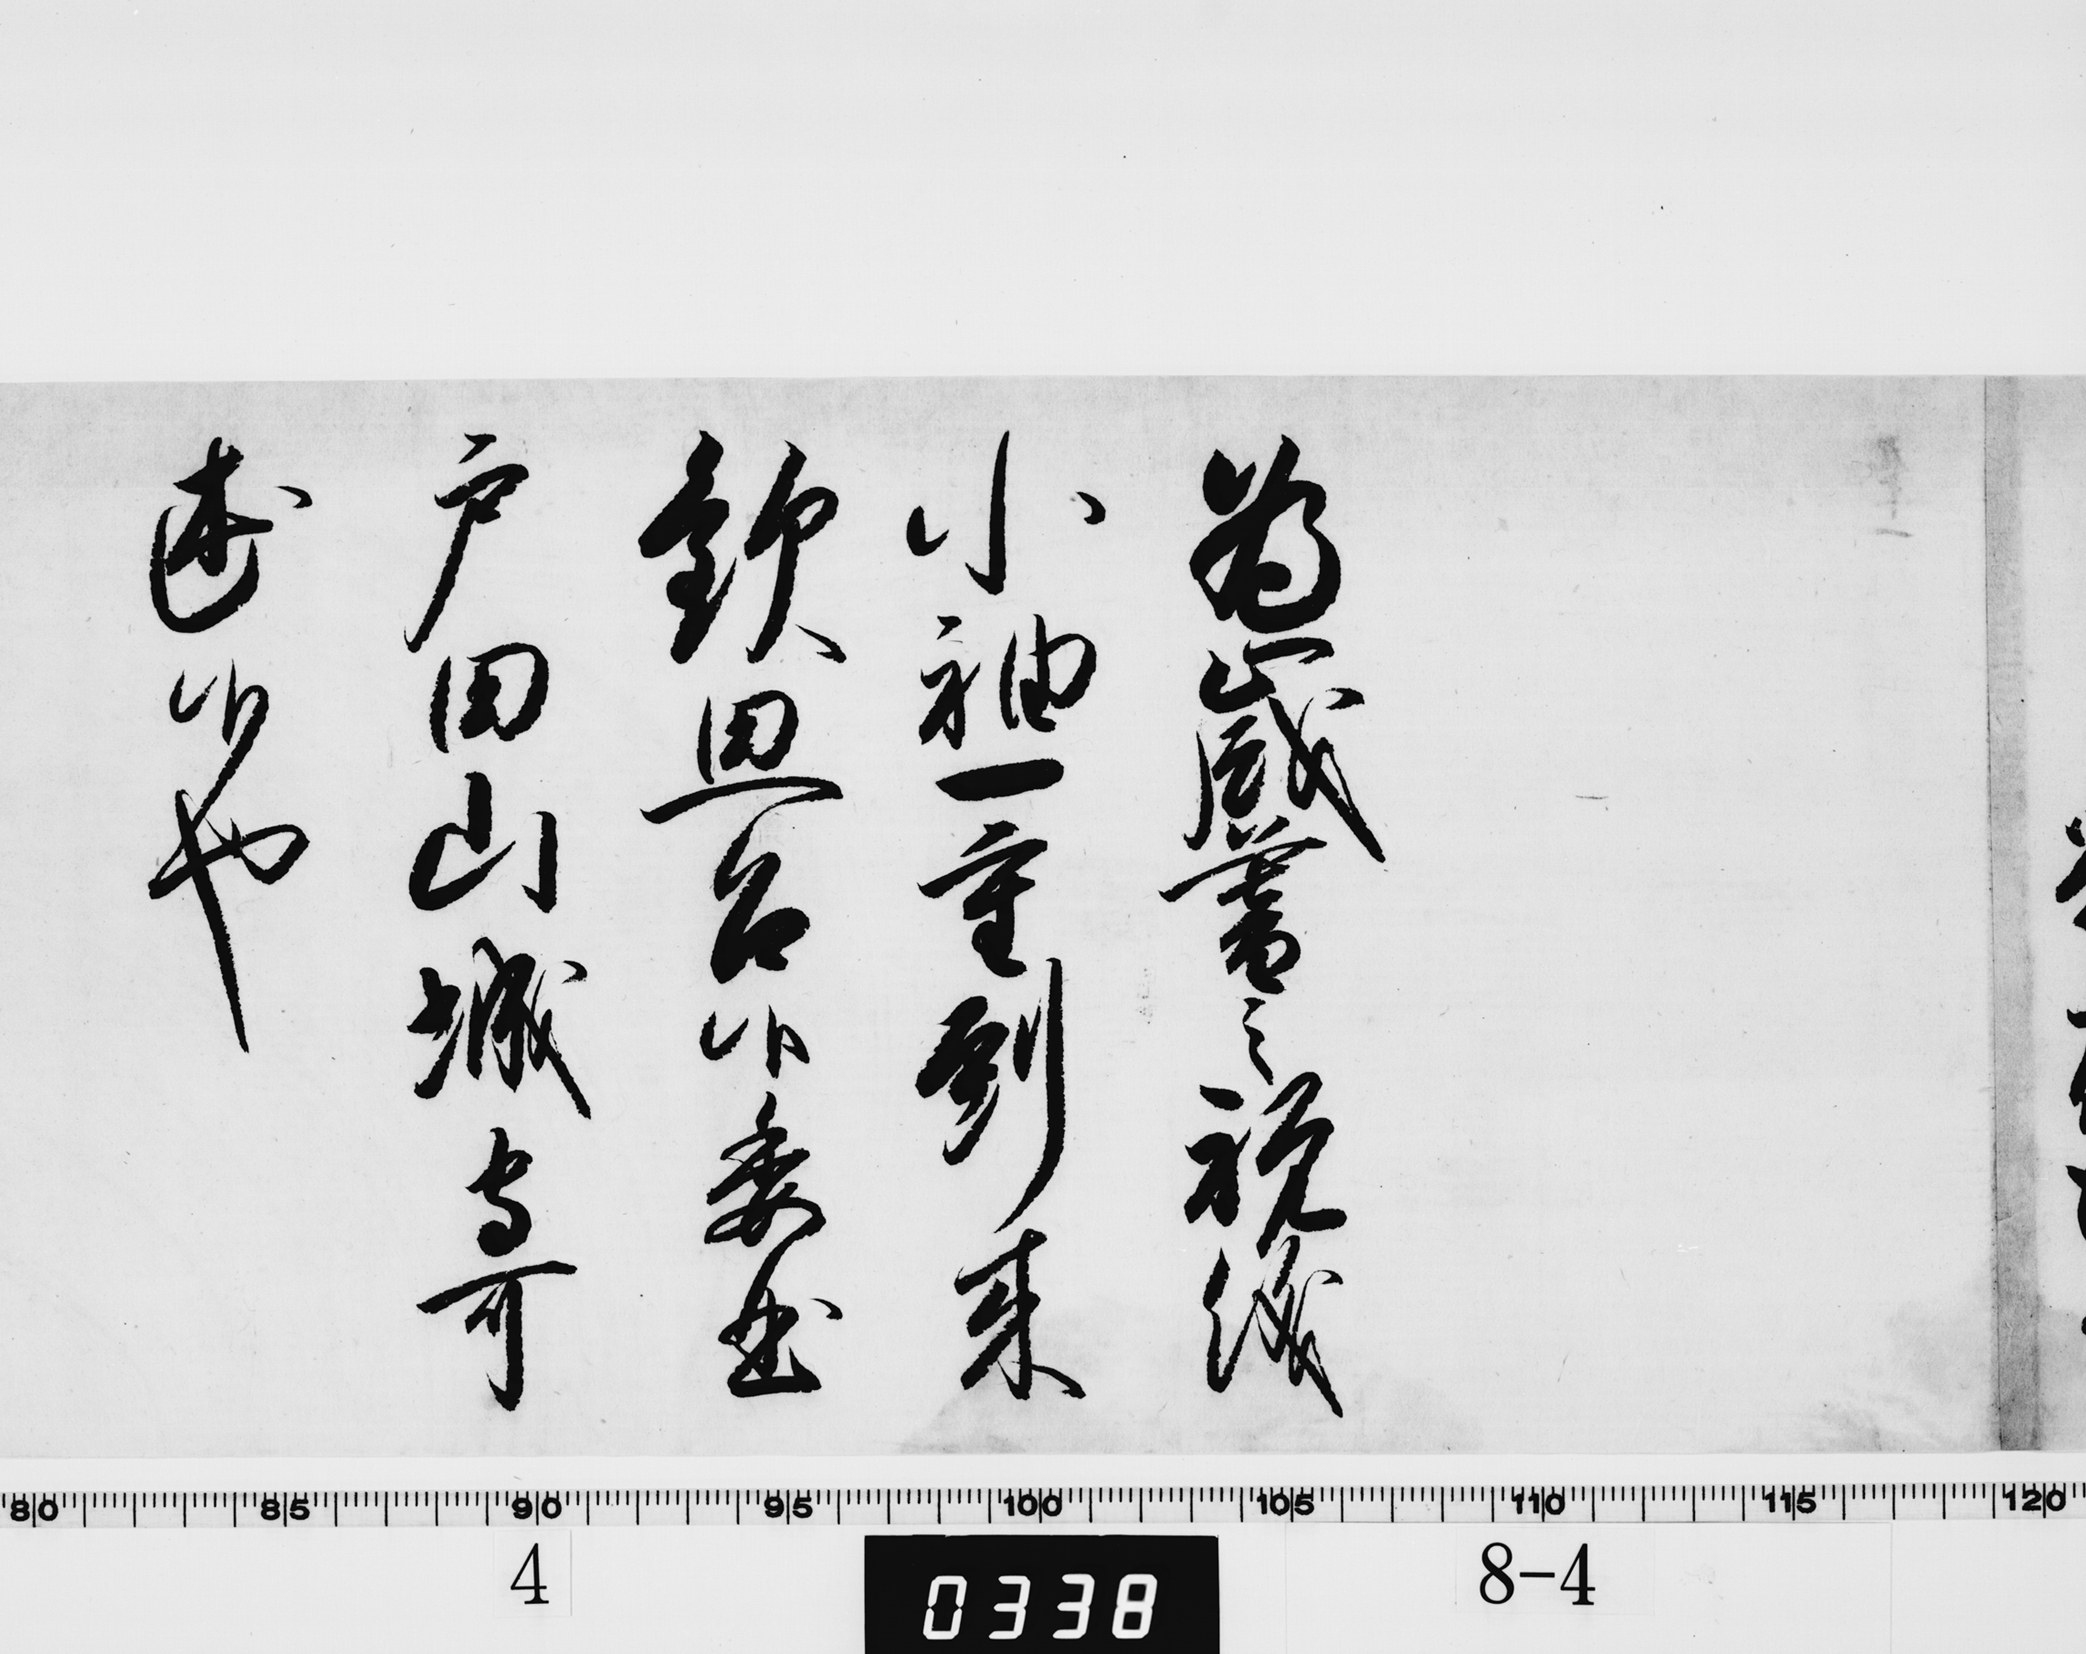 為歳暮之祝儀
小袖一重到来
歓思召候委曲
戸田山城守可
述候也
80 85 90 95 100 105 110 115 120
4
0338
8-4